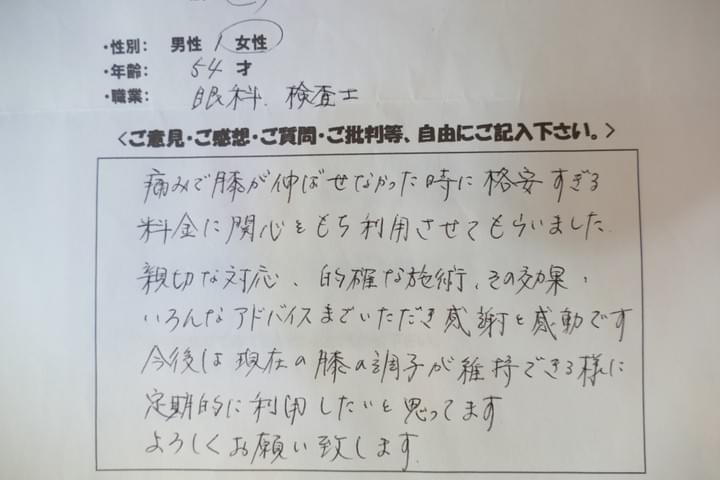 ・性別： 男性 / 女性
・年齢： 54 才
・職業： 眼科. 検査士
＜ご意見・ご感想・ご質問・ご批判等、自由にご記入下さい。＞
痛みで膝が伸ばせなかった時に格安すぎる
料金に関心をもち利用させてもらいました.
親切な対応、的確な施術、その効果・
いろんなアドバイスまでいただき感謝と感動です
今後は現在の膝の調子が維持できる様に
定期的に利用したいと思ってます
よろしくお願い致します.